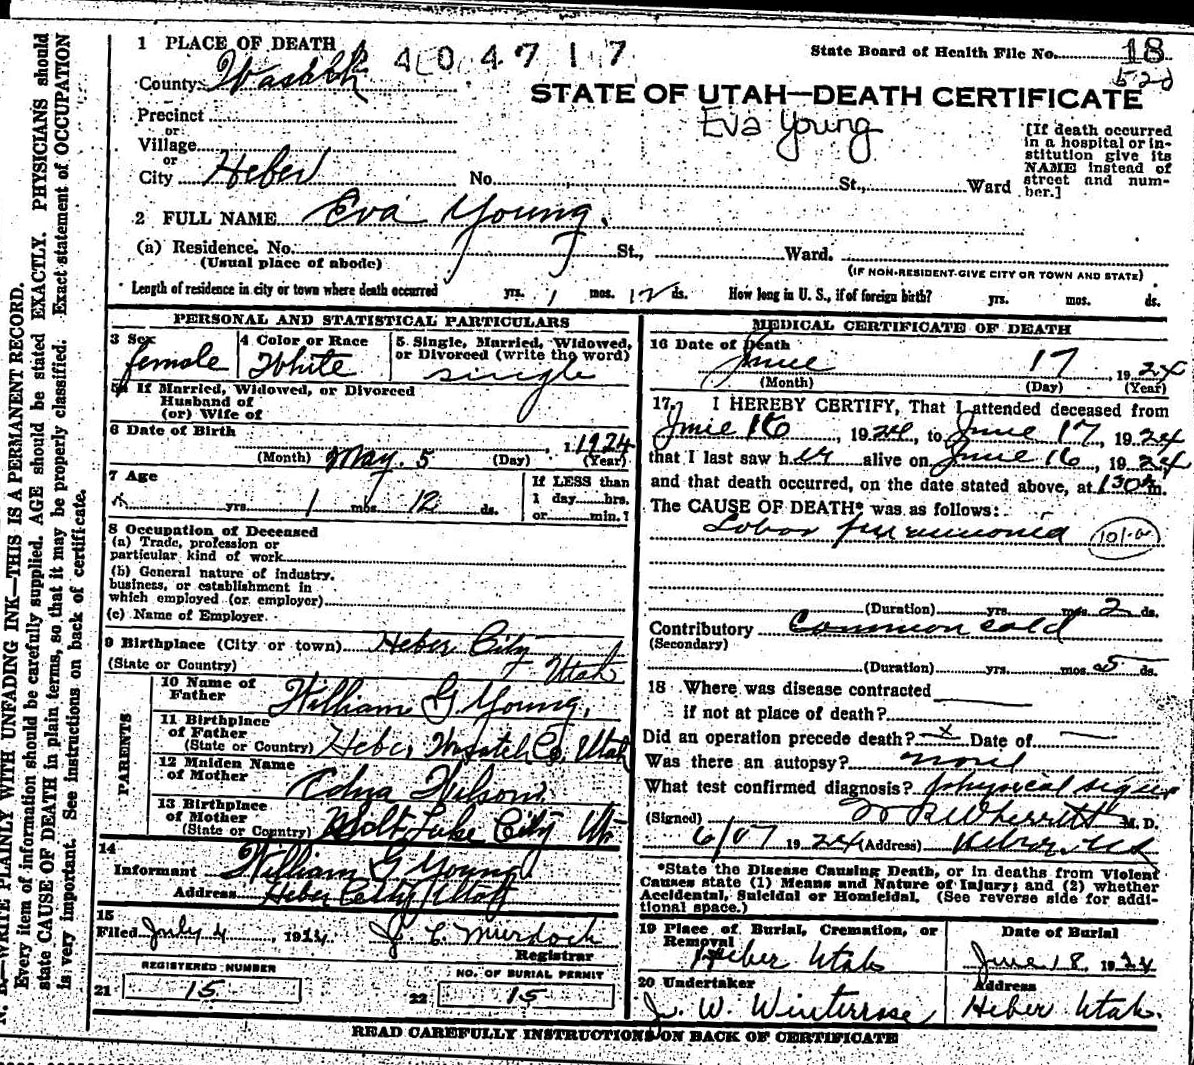 1 PLACE OF DEATH
State Board of Health File No. 18
County Wasatch
STATE OF UTAH—DEATH CERTIFICATE
Eva Young
Precinct
or
Village
or
City Heber No. St., Ward
[If death occurred
in a hospital or in-
stitution give its
NAME instead of
street and num-
ber.]
2 FULL NAME Eva Young.
(a) Residence. No. St., Ward.
(Usual place of abode)
(IF NON-RESIDENT GIVE CITY OR TOWN AND STATE)
Length of residence in city or town where death occurred yrs. 1 mos. 12 ds. How long in U. S., if of foreign birth? yrs. mos. ds.
PERSONAL AND STATISTICAL PARTICULARS
3 Sex
female
4 Color or Race
White
5 Single, Married, Widowed,
or Divorced (write the word)
single
5a If Married, Widowed, or Divorced
Husband of
(or) Wife of
6 Date of Birth
(Month) May. 5 (Day) 1924 (Year)
7 Age
yrs. 1 mos. 12 ds.
If LESS than
1 day hrs.
or min.?
8 Occupation of Deceased
(a) Trade, profession or
particular kind of work
(b) General nature of industry,
business, or establishment in
which employed (or employer)
(c) Name of Employer
9 Birthplace (City or town) Heber City
(State or Country) Utah
PARENTS
10 Name of
Father William G. Young.
11 Birthplace
of Father
(State or Country) Heber, Wasatch Co. Utah
12 Maiden Name
of Mother Edna Wilson.
13 Birthplace
of Mother
(State or Country) Salt Lake City Ut
14
Informant William G Young
Address Heber City Utah
15
Filed July 4, 1924 J. C. Murdoch
Registrar
REGISTERED NUMBER
21 15
NO. OF BURIAL PERMIT
22 15
MEDICAL CERTIFICATE OF DEATH
16 Date of Death
June 17 1924
(Month) (Day) (Year)
17 I HEREBY CERTIFY, That I attended deceased from
June 16, 1924, to June 17, 1924
that I last saw her alive on June 16, 1924
and that death occurred, on the date stated above, at 130 m.
The CAUSE OF DEATH* was as follows:
Lobar pneumonia 101-a
(Duration) yrs. mos. 2 ds.
Contributory Common cold
(Secondary)
(Duration) yrs. mos. 5 ds.
18 Where was disease contracted
if not at place of death?
Did an operation precede death? x Date of
Was there an autopsy? none
What test confirmed diagnosis? physical signs
(Signed) W R Wherritt M. D.
1924 (Address) Heber, Ut
*State the Disease Causing Death, or in deaths from Violent
Causes state (1) Means and Nature of Injury; and (2) whether
Accidental, Suicidal or Homicidal. (See reverse side for addi-
tional space.)
19 Place of Burial, Cremation, or
Removal
Heber Utah
Date of Burial
June 18, 1924
20 Undertaker
J. W. Winterrose
Address
Heber Utah.
READ CAREFULLY INSTRUCTIONS ON BACK OF CERTIFICATE
N. B.—WRITE PLAINLY WITH UNFADING INK—THIS IS A PERMANENT RECORD.
Every item of information should be carefully supplied. AGE should be stated EXACTLY. PHYSICIANS should
state CAUSE OF DEATH in plain terms, so that it may be properly classified. Exact statement of OCCUPATION
is very important. See instructions on back of certificate.